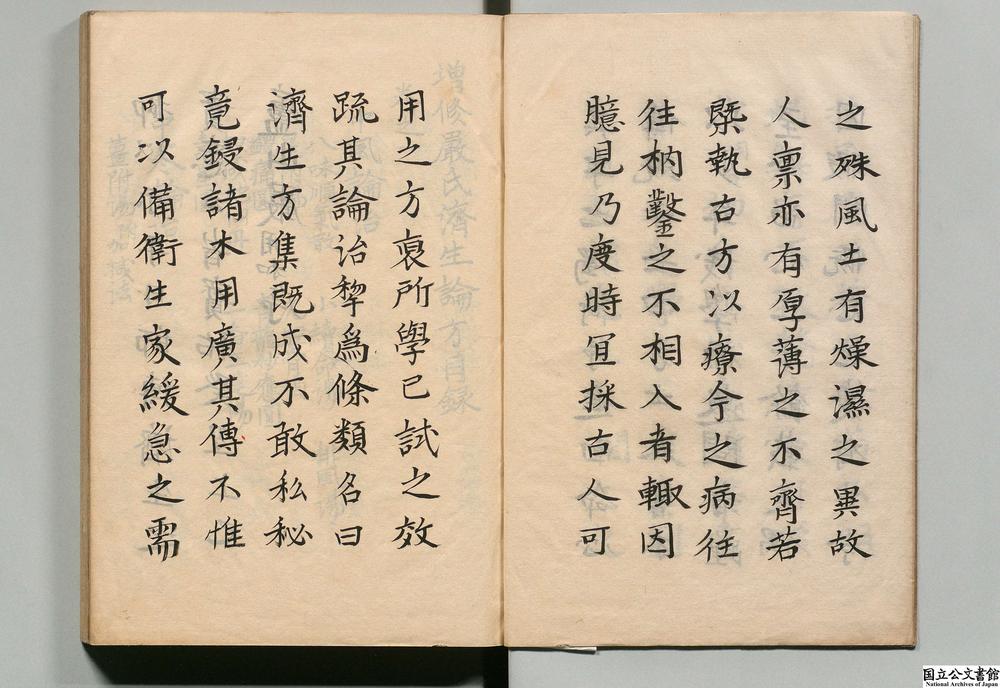 之殊風土有燥濕之異故
人禀亦有厚薄之不齊若
槩執古方以療今之病往
往枘鑿之不相入者輙因
臆見乃度時冝採古人可
用之方裒所學已試之效
疏其論治犂爲條類名曰
濟生方集既成不敢私秘
竟鋟諸木用廣其傳不惟
可以備衛生家緩急之需
国立公文書館
National Archives of Japan